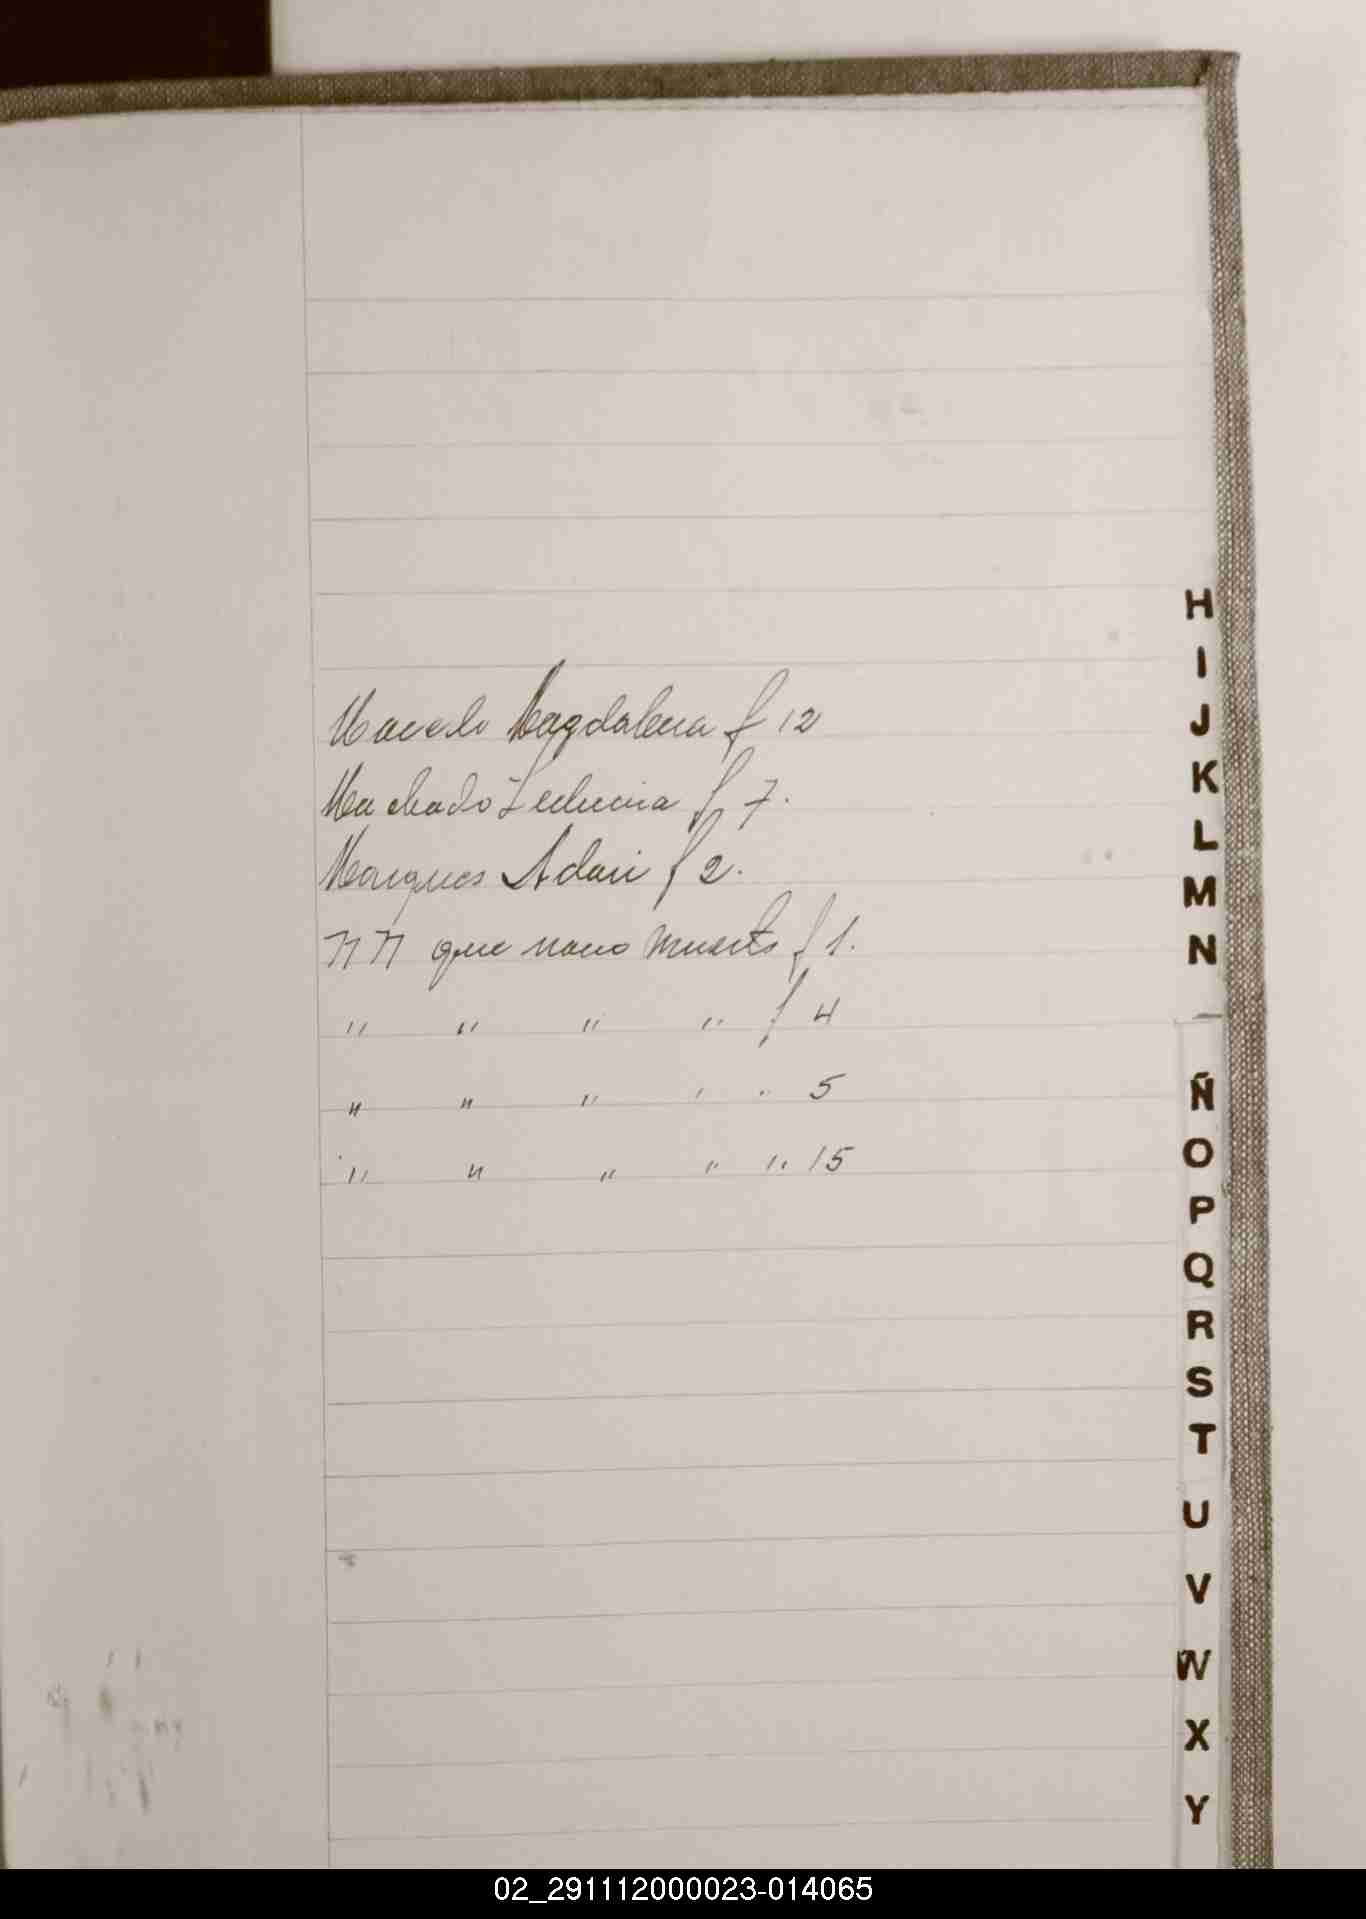 Macelo Magdalena f 12
Machado Leduvina f 7.
Marques Adan f 2.
NN que nacio muerto f 1.
" " " " f 4
" " " " " 5
" " " " " 15
H
I
J
K
L
M
N
Ñ
O
P
Q
R
S
T
U
V
W
X
Y
02_291112000023-014065